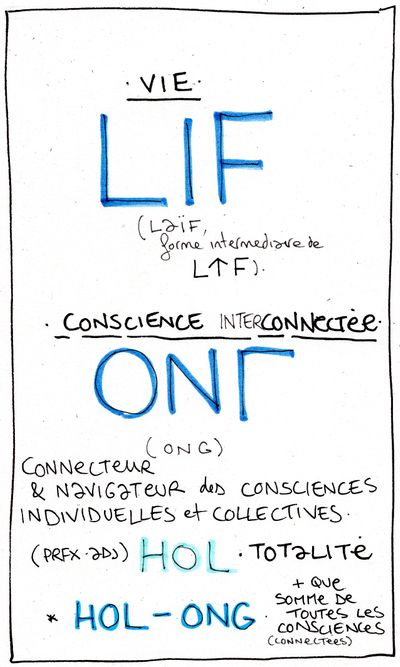 · VIE ·
LIF
(LaïF,
forme intermediaire de
L↑F).
· CONSCIENCE INTERCONNECTÉE ·
ONΓ
(ONG)
CONNECTEUR
& NAVIGATEUR des CONSCIENCES
INDIVIDUELLES et COLLECTIVES.
(PRFX·ADJ) HOL · TOTALITÉ
* HOL-ONG .
+ QUE
SOMME DE
TOUTES LES
CONSCIENCES
(CONNECTÉES)